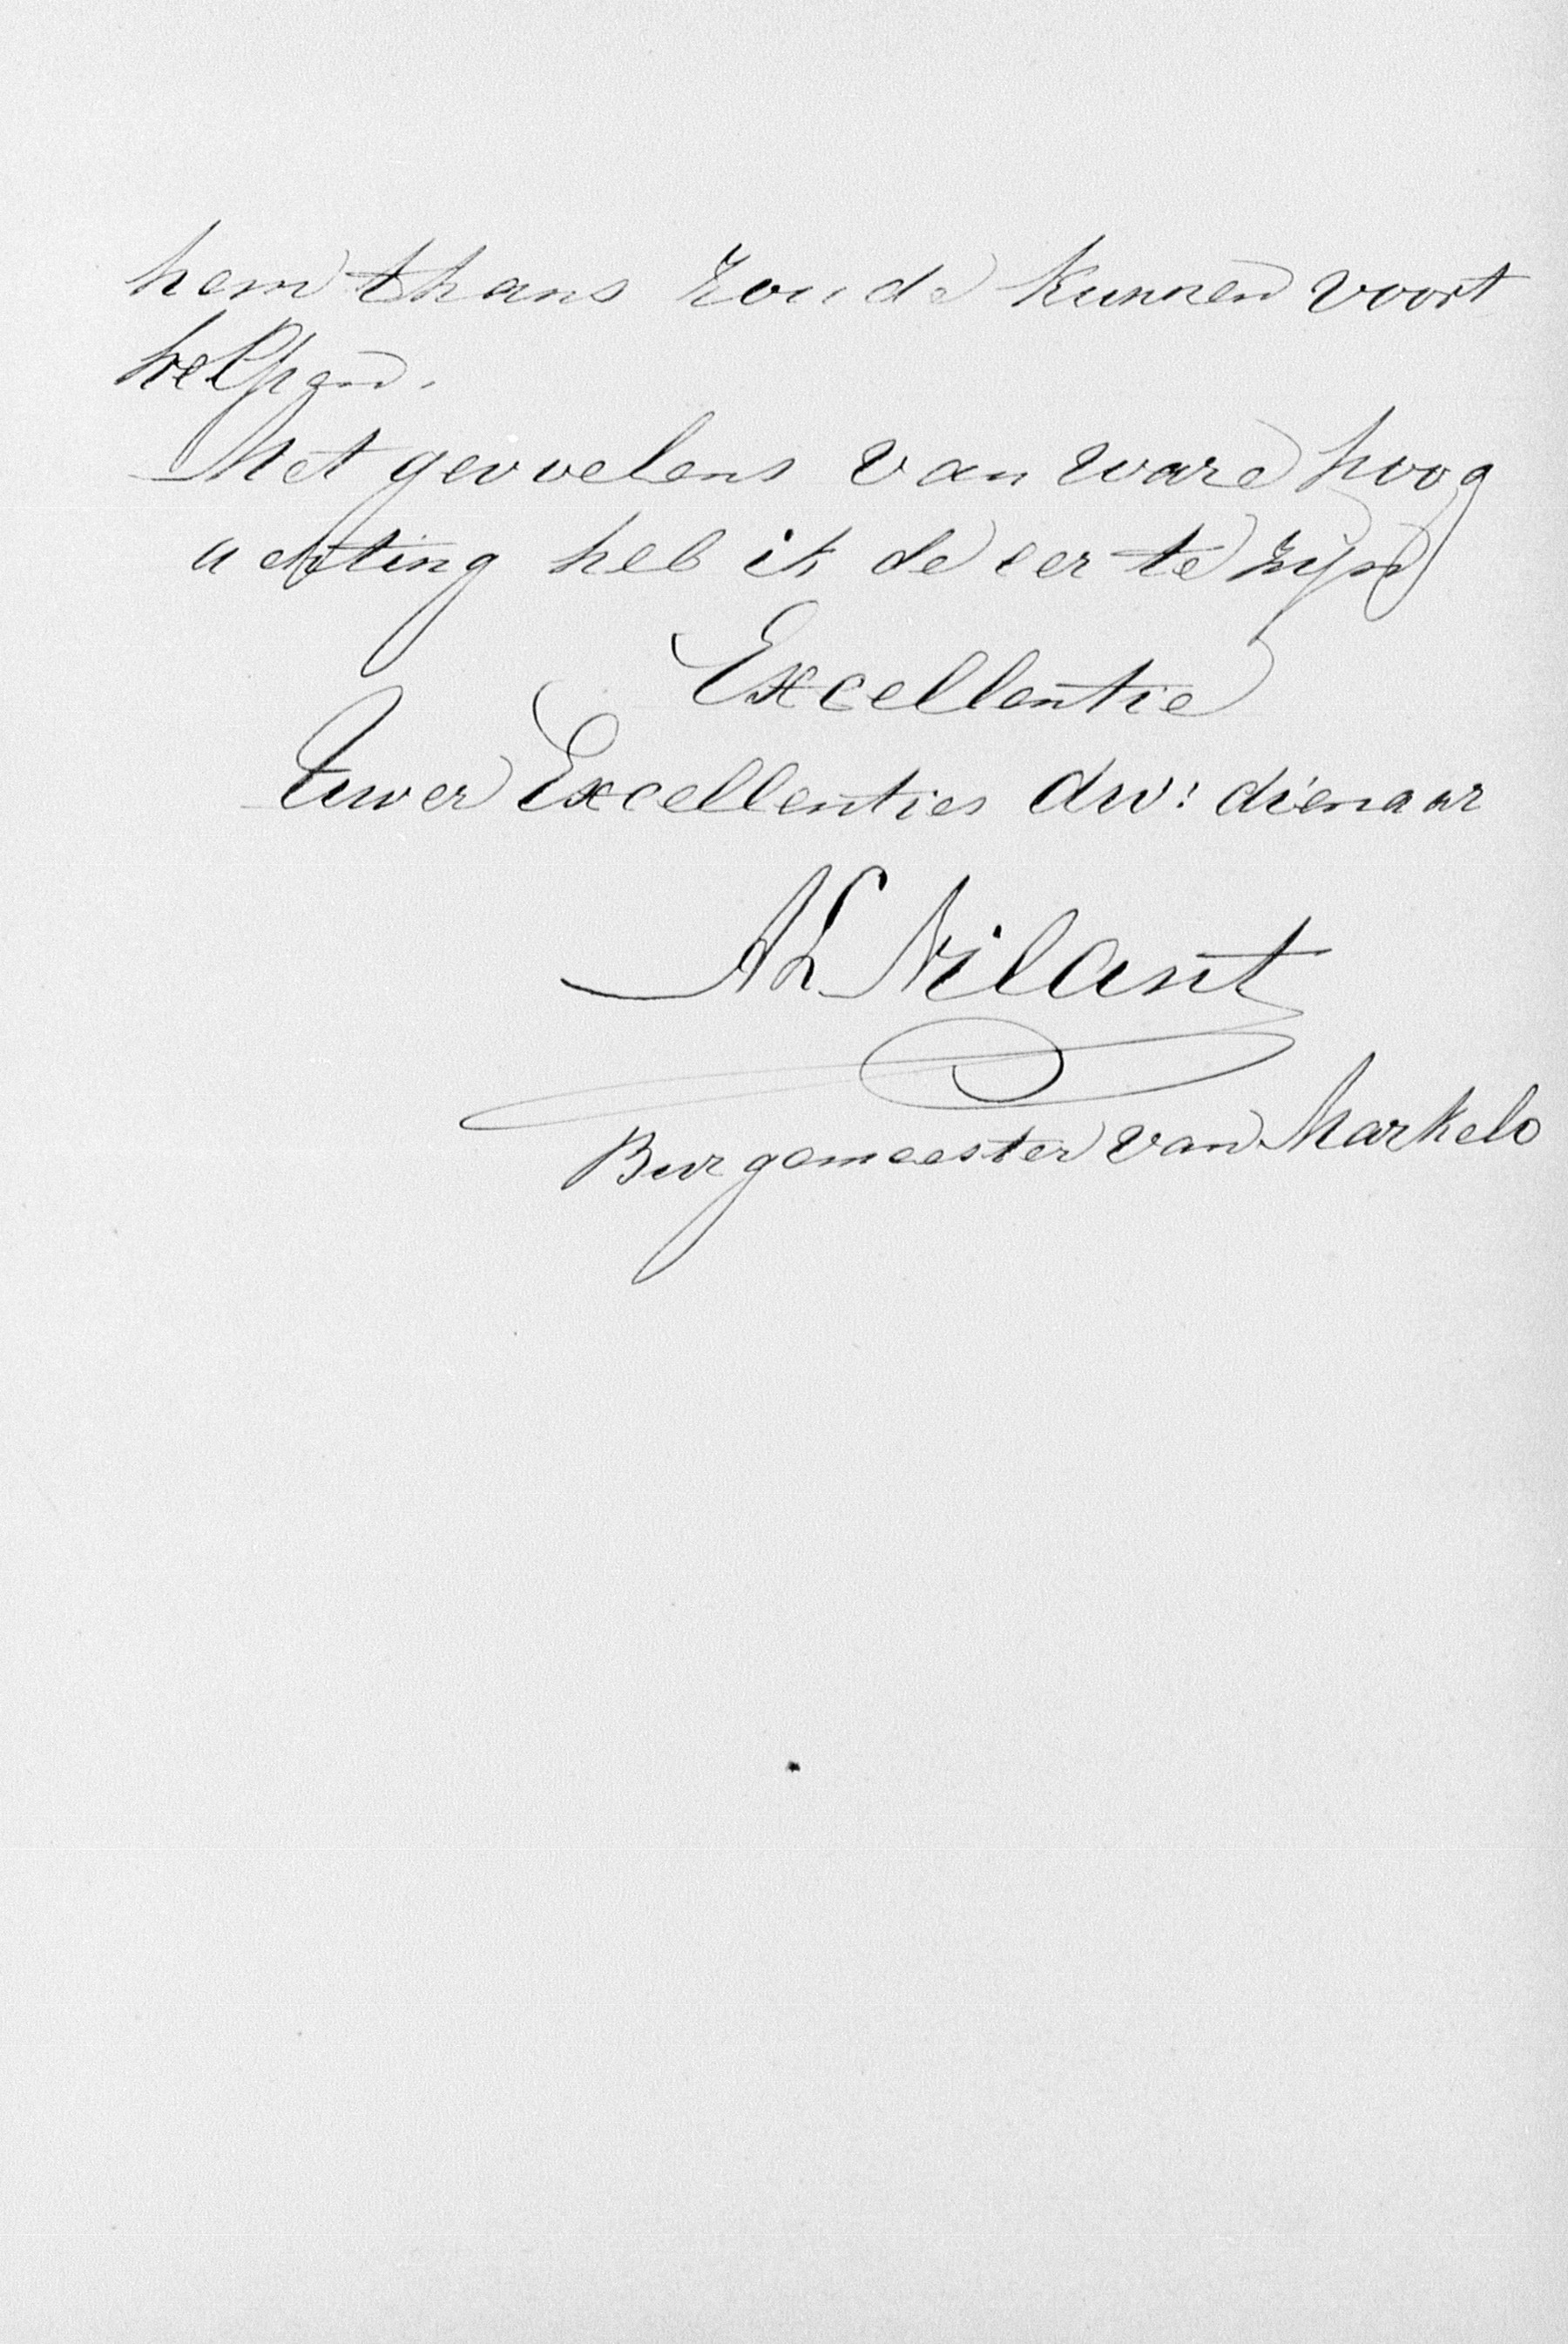 hem thans zoude kunnen voort
helpen.
Met gevoelens van ware hoog
achting heb ik de eer te zijn
Excellentie
Uwer Excellenties dw: dienaar
AL Nilant
Burgemeester van Markelo